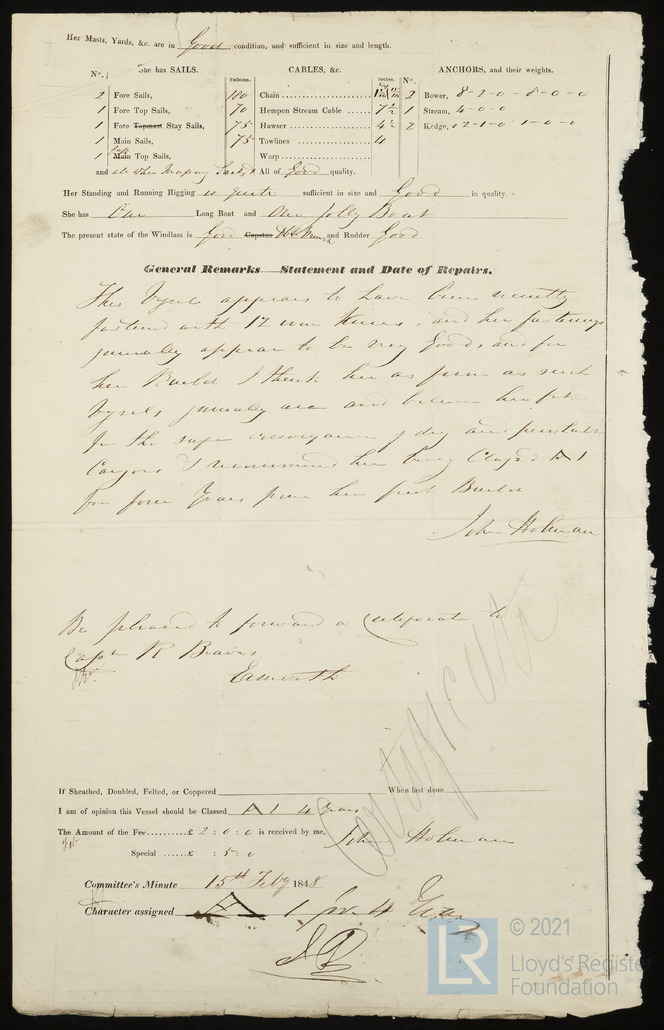 Her Masts, Yards, &c. are in Good condition, and sufficient in size and length.
She has SAILS. CABLES, &c. ANCHORS, and their weights.
N°. Fathoms. Inches. N°.
2 Fore Sails, 180 Chain 2 Bower, 8-2-0 - 8-0-0
1 Fore Top Sails, 70 Hempen Stream Cable 7 1/2 1 Stream, 4-0-0
1 Fore Topmast Stay Sails, 75 Hawser 4 1/2 2 Kedge, 1-0-0
1 Main Sails, 75 Towlines 4
1 Main Top Sails, Warp
and All of Good quality.
Her Standing and Running Rigging is quite sufficient in size and Good in quality.
She has One Long Boat and One Jolly Boat
The present state of the Windlass is Good Capstan and Rudder Good
General Remarks Statement and Date of Repairs.
This Vessel appears to have been recently
fastened with 12 iron Knees, and her fastenings
generally appear to be very Good, and for
her Build I think her as firm as such
Vessels generally are and believe her fit
for the safe conveyance of dry and perishable
Cargoes I recommend her being Classed A 1
for four Years from her first Build
John Holman
Be pleased to forward a Certificate to
Capn R Beaves
Emsworth
Certificate
If Sheathed, Doubled, Felted, or Coppered When last done
I am of opinion this Vessel should be Classed A 1 4 Years
The Amount of the Fee..........£ 2 : 0 : 0 is received by me, John Holman
Special ......£ : 5 : 0
Committee's Minute 15th Feby 1848
Character assigned A 1 for 4 Years
LR
© 2021
Lloyd's Register
Foundation